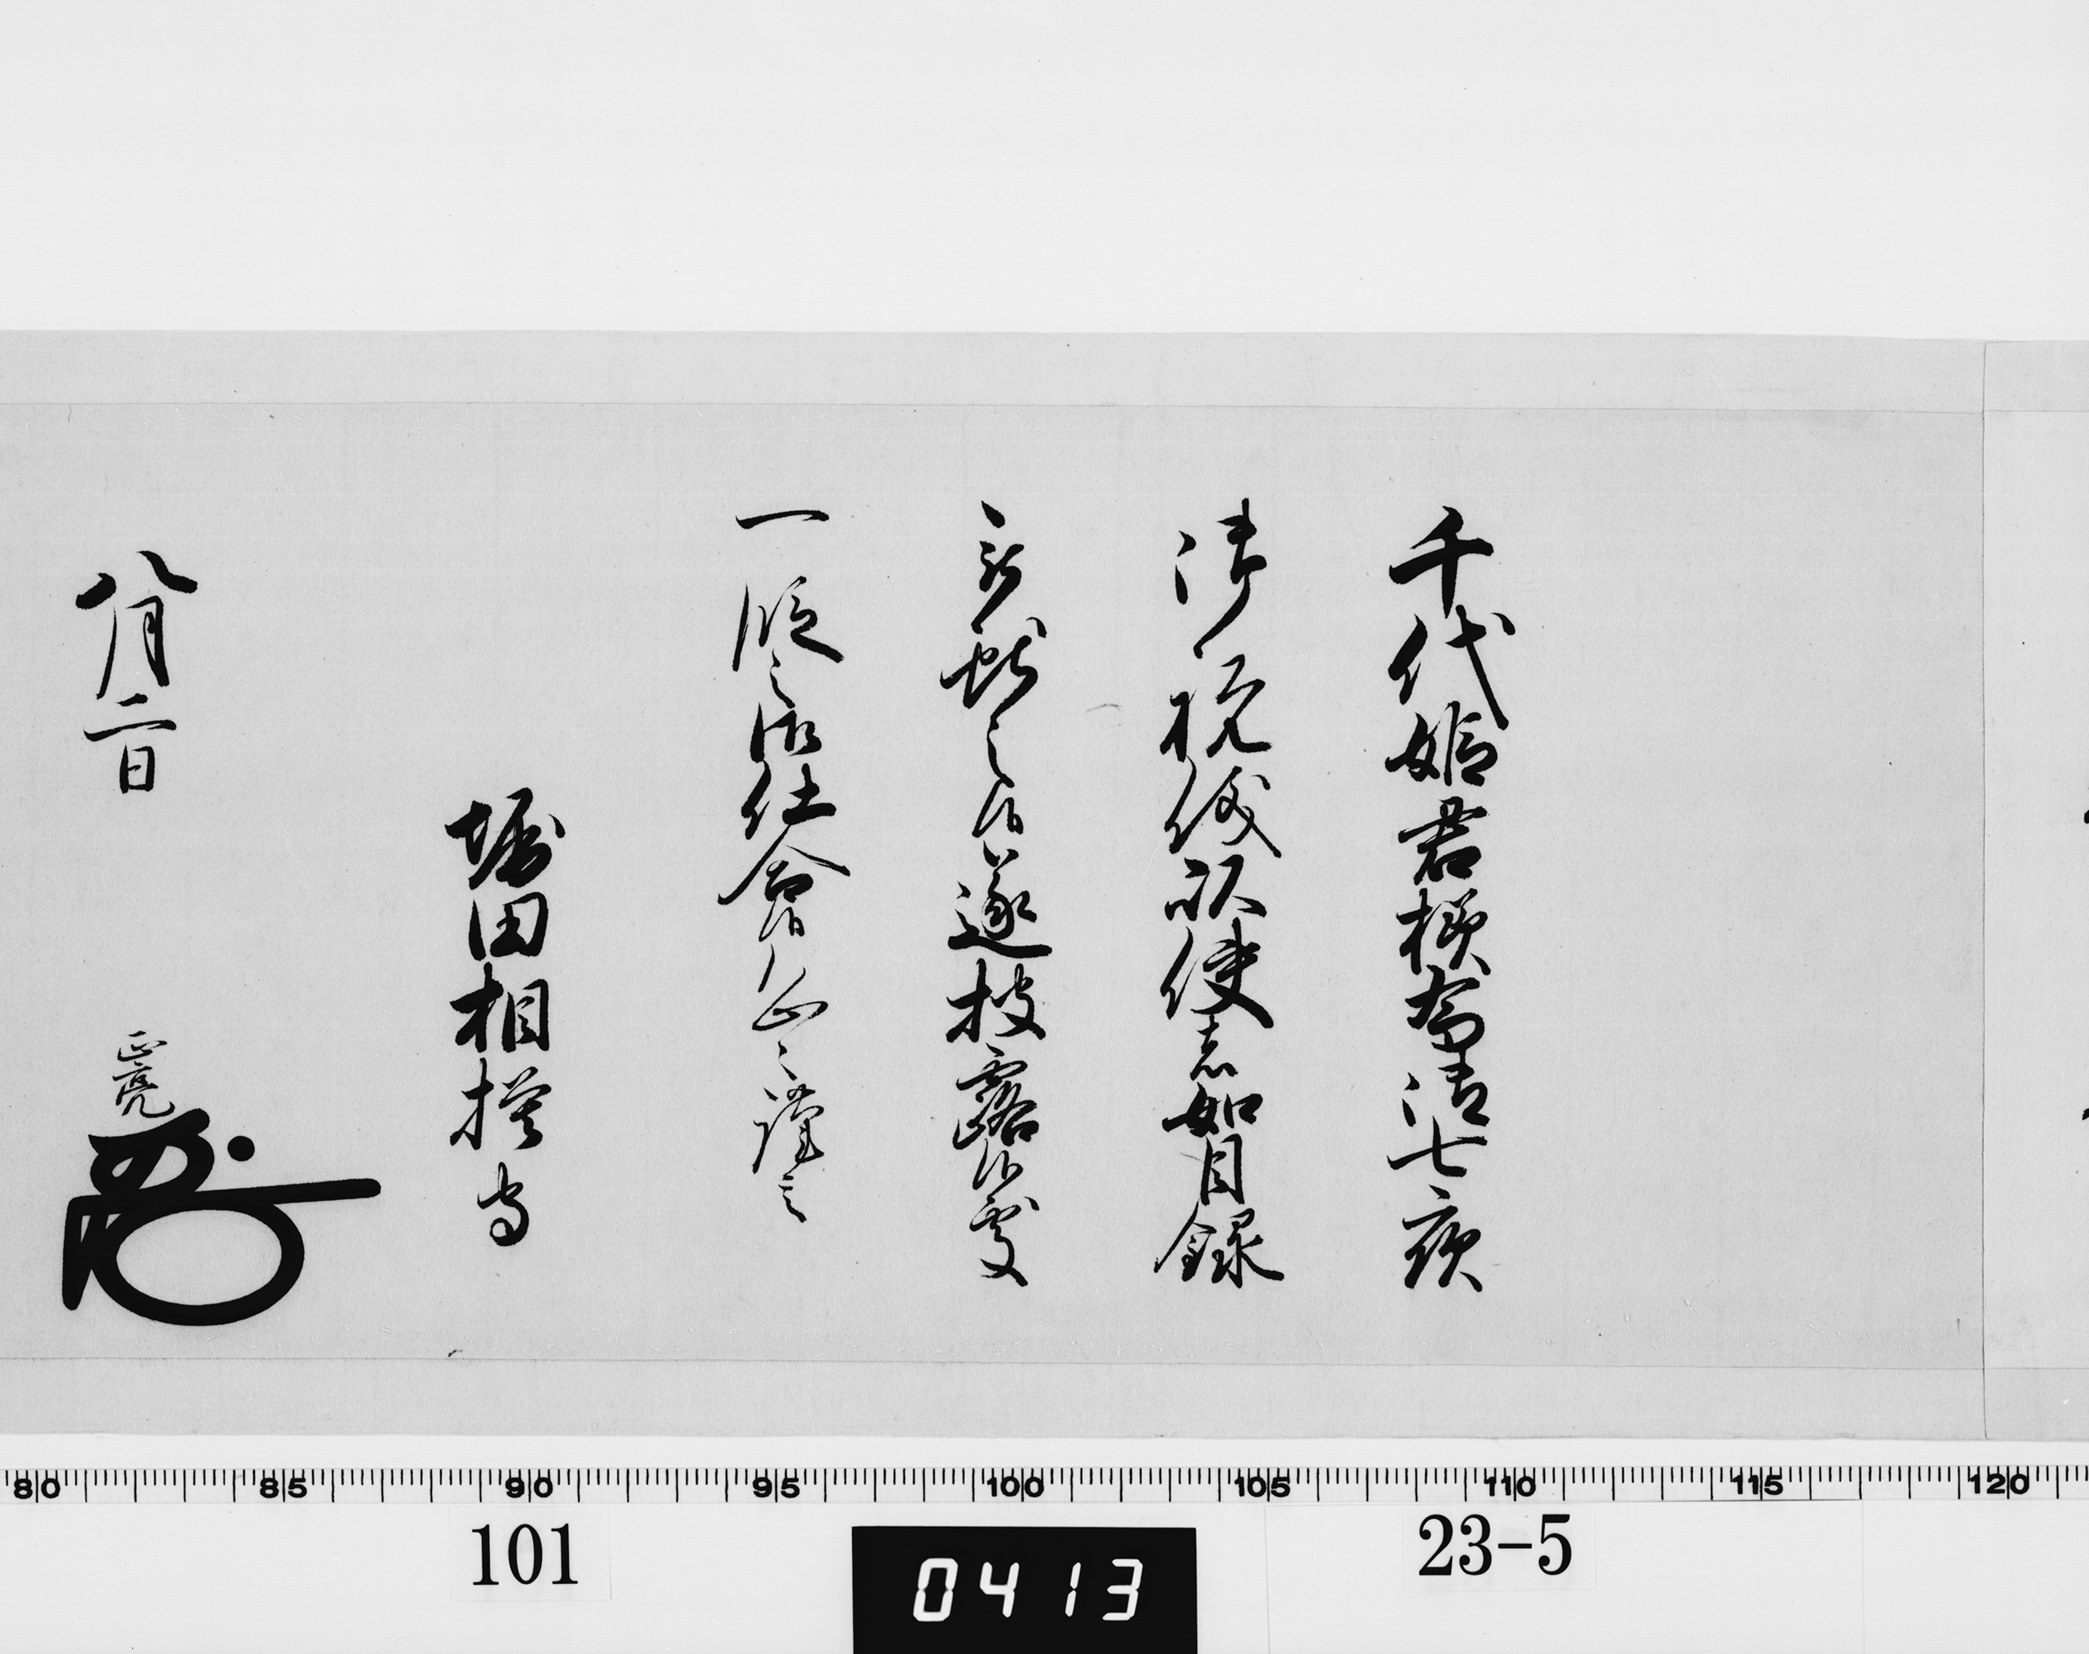 千代姫君様爲御七夜
御祝儀以使者如目録
被献之候遂披露候處
一段之御仕合候恐々謹言
堀田相模守
八月二日
正亮
80 85 90 95 100 105 110 115 120
101
0413
23-5